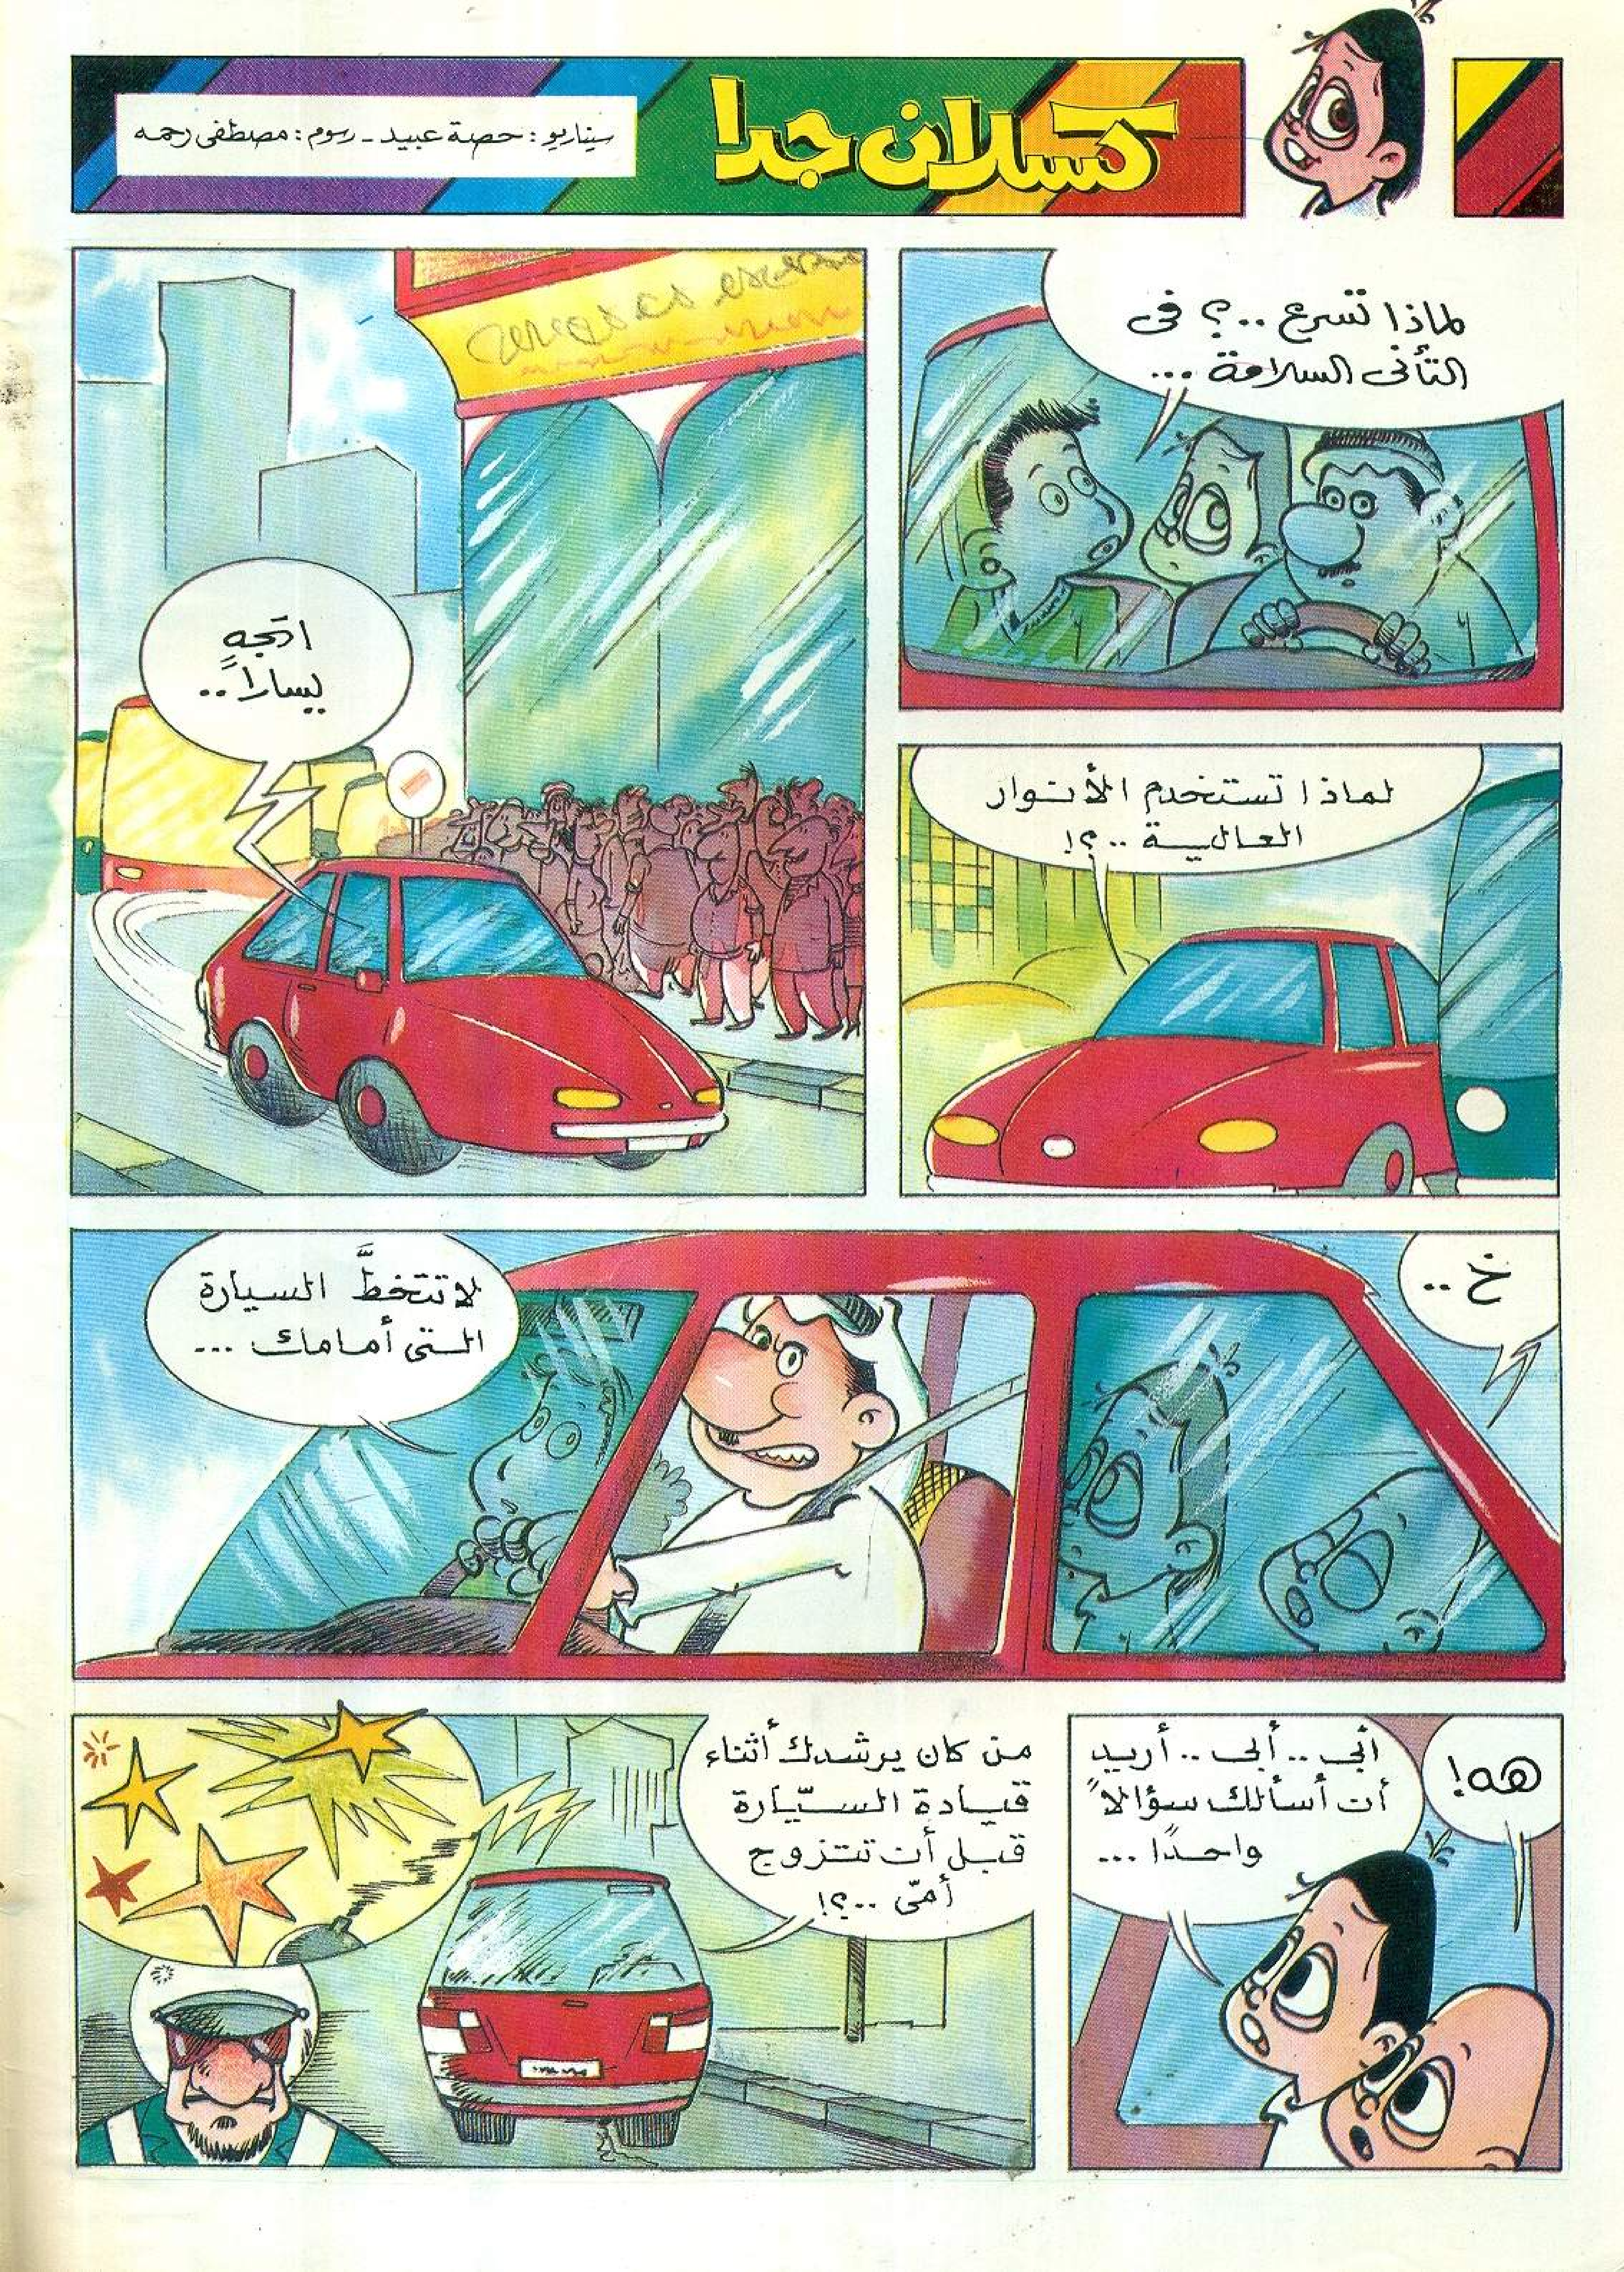 كسلان جدا
سيناريو : حصة عبيد - رسوم : مصطفى رحمه
لماذا تسرع ..؟ في
التأنى السلامة ...
لماذا تستخدم الأنوار
العالية ..؟!
اتجه
يساراً ..
خ ..
لا تتخطَّ السيارة
التى أمامك ...
هه!
أبي .. أبى .. أريد
أن أسألك سؤالاً
واحدًا ...
من كان يرشدك أثناء
قيادة السيّارة
قبل أن تتزوج
أمّى ..؟!